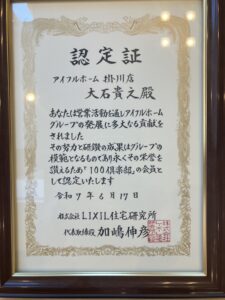 認定証
アイフルホーム 掛川店
大石貴之殿
あなたは営業活動を通しアイフルホーム
グループの発展に多大なる貢献を
されました
その努力と研鑽の成果はグループの
模範となるものであり永くその栄誉を
讃えるため「100倶楽部」の会員と
して認定いたします
令和7年6月17日
株式会社LIXIL住宅研究所
代表取締役 加嶋伸彦